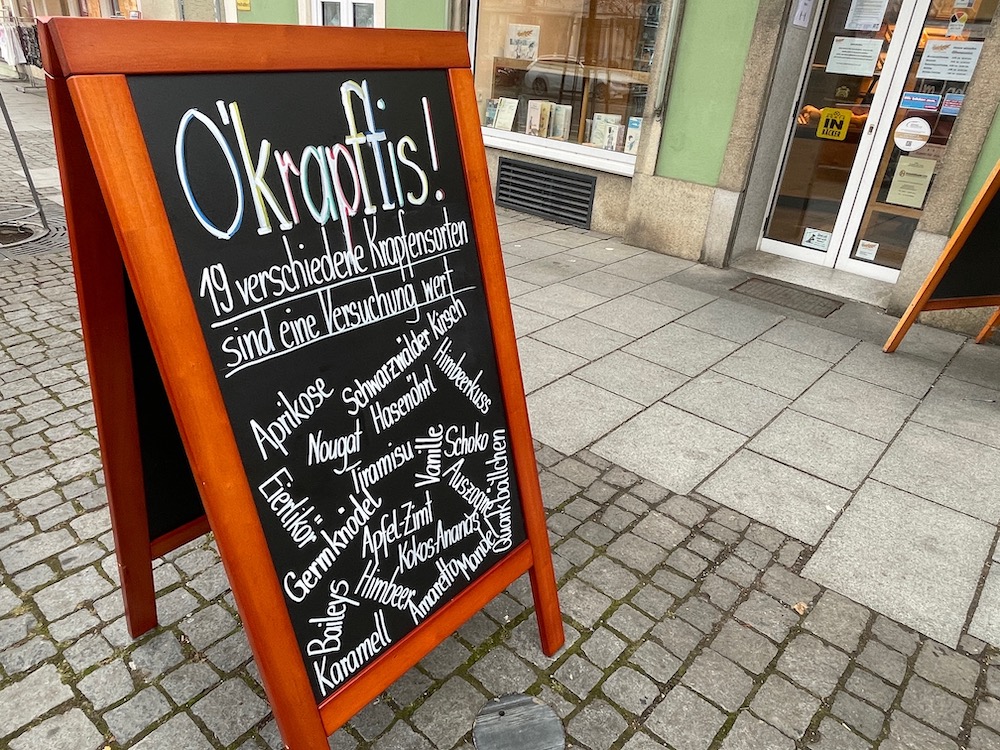 O'krapftis!
19 verschiedene Krapfensorten
sind eine Versuchung wert
Aprikose
Schwarzwälder Kirsch
Himbeerkuss
Hasenöhrl
Nougat
Tiramisu
Vanille
Schoko
Eierlikör
Germknödel
Auszogne
Quarkbällchen
Apfel-Zimt
Kokos-Ananas
Mandel
Himbeer
Amaretto
Baileys
Karamell
IN